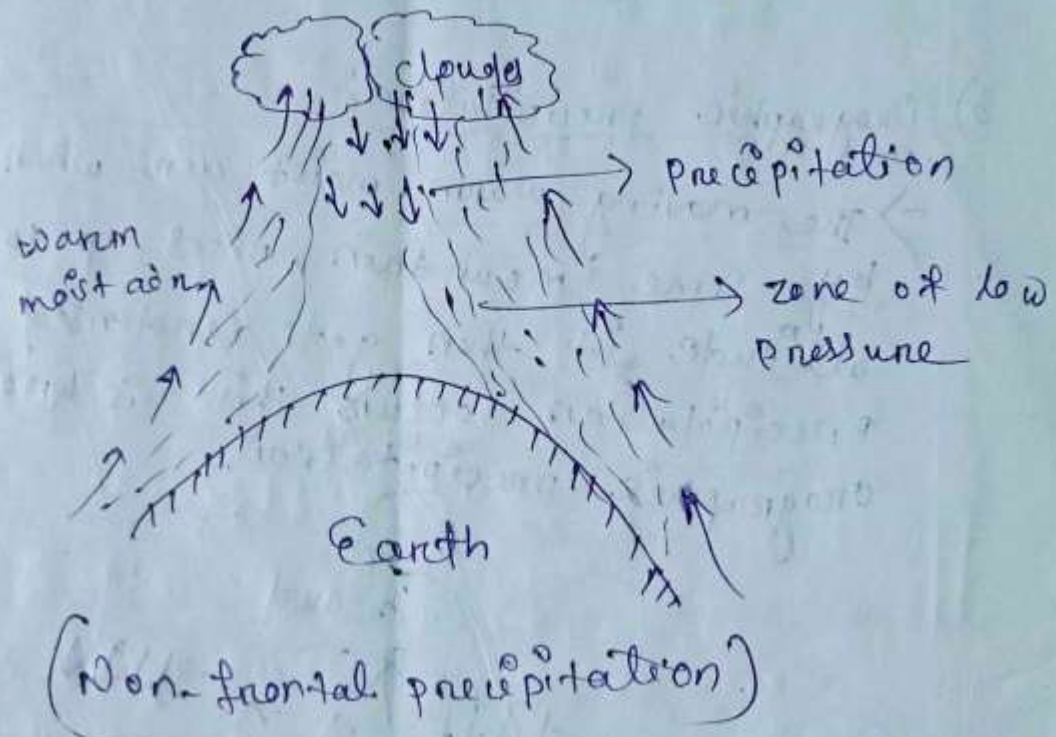 clouds
precipitation
warm
moist air
zone of low
pressure
Earth
(Non-frontal precipitation)